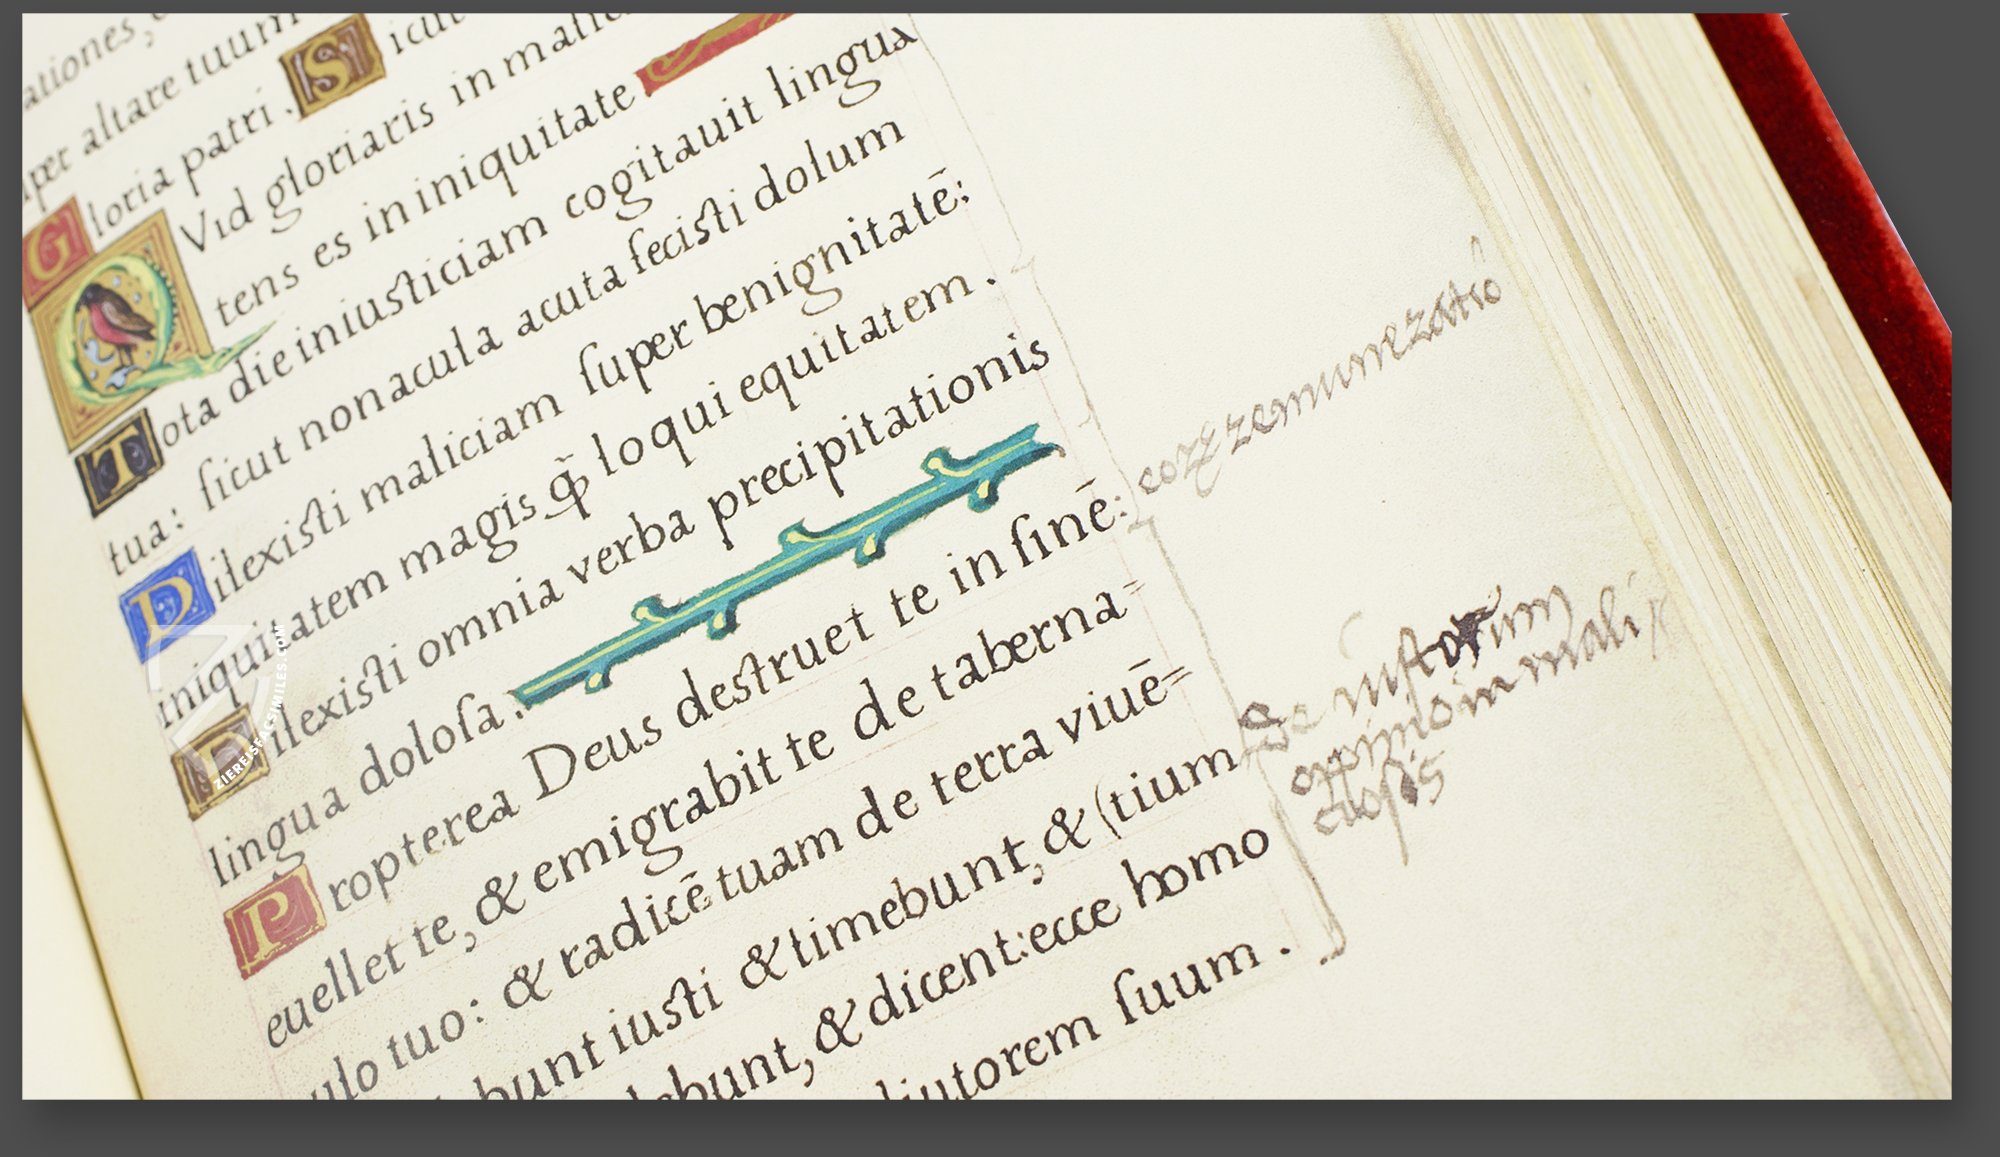 ationes,
per altare tuum
Gloria patri. Sicut
QVid gloriaris in mali
tens es in iniquitate
Tota die iniusticiam cogitauit lingua
tua: sicut nonacula acuta fecisti dolum
Dilexisti maliciam super benignitatē:
iniquitatem magis q̄ loqui equitatem.
Dilexisti omnia verba precipitationis
lingua dolosa.
Propterea Deus destruet te in finē:
euellet te, & emigrabit te de taberna-
ulo tuo: & radicē tuam de terra viuē=
bunt iusti & timebunt, & (tium
debunt, & dicent: ecce homo
diutorem suum.
de iustorum
in mali
ZIEREISFACSIMILES.COM